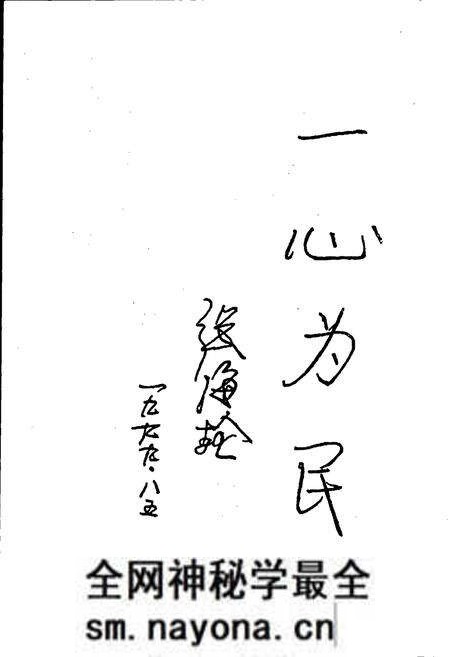 一心为民
张海
一九九九.八.五
全网神秘学最全
sm.nayona.cn